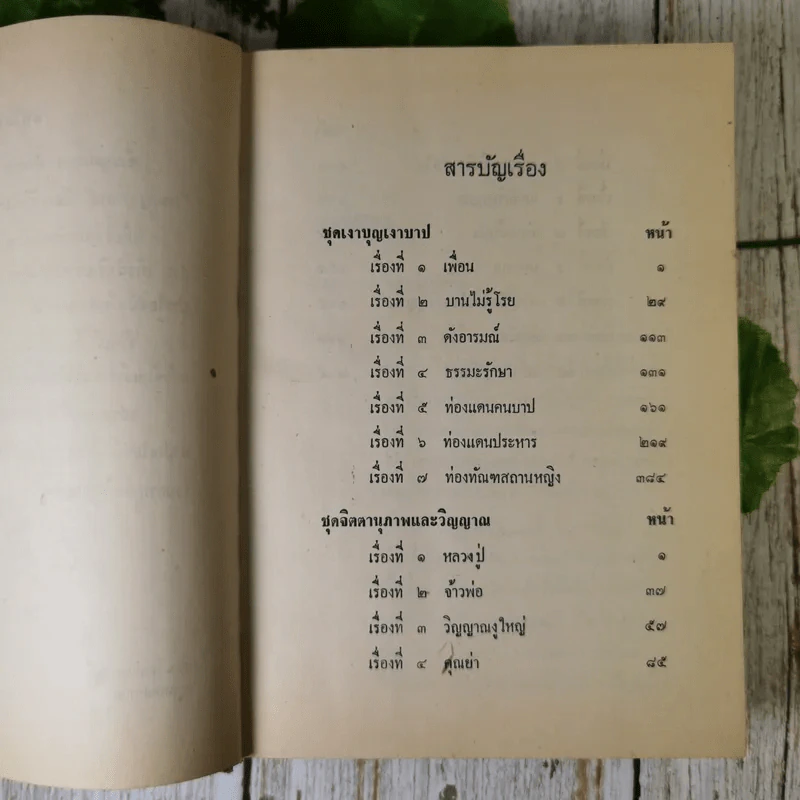 สารบัญเรื่อง
ชุดเงาบุญเงาบาป หน้า
เรื่องที่ ๑ เพื่อน ๑
เรื่องที่ ๒ บานไม่รู้โรย ๒๙
เรื่องที่ ๓ ดังอารมณ์ ๑๑๓
เรื่องที่ ๔ ธรรมะรักษา ๑๓๑
เรื่องที่ ๕ ท่องแดนคนบาป ๑๖๑
เรื่องที่ ๖ ท่องแดนประหาร ๒๑๙
เรื่องที่ ๗ ท่องทัณฑสถานหญิง ๓๘๔
ชุดจิตตานุภาพและวิญญาณ หน้า
เรื่องที่ ๑ หลวงปู่ ๑
เรื่องที่ ๒ จ้าวพ่อ ๓๗
เรื่องที่ ๓ วิญญาณงูใหญ่ ๕๗
เรื่องที่ ๔ คุณย่า ๘๕